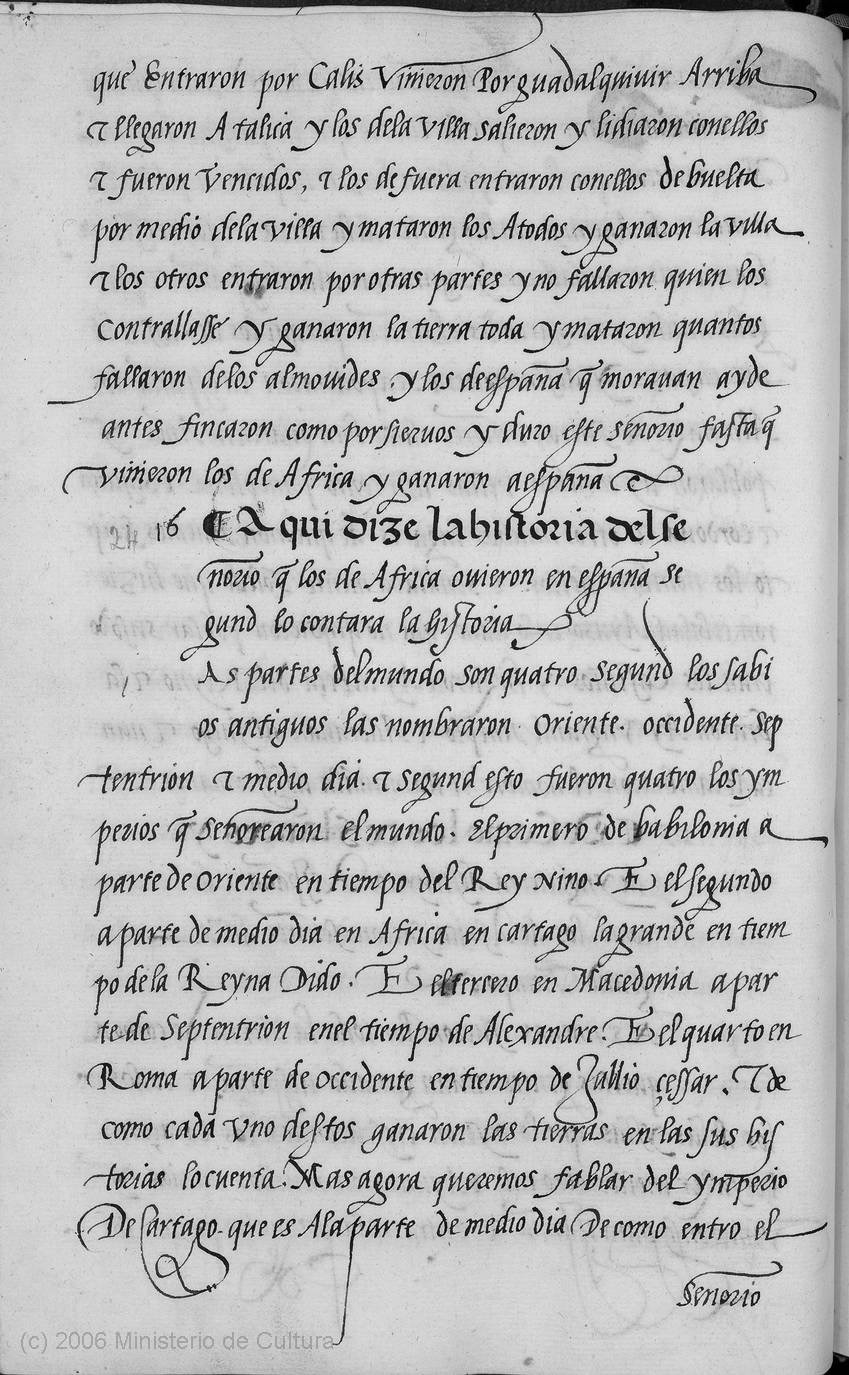 que Entraron por Calis Vinieron Por guadalquivir Arriba
τ llegaron A talica y los dela villa salieron y lidiaron conellos
τ fueron Vencidos, τ los de fuera entraron conellos de buelta
por medio dela villa y mataron los A todos y ganaron la villa
τ los otros entraron por otras partes y no fallaron quien los
Contrallasse y ganaron la tierra toda y mataron quantos
fallaron delos almonides y los deespaña q̃ moravan ayde
antes fincaron como por siervos y duro este señorio fasta q̃
vinieron los de Africa y ganaron aespaña
24 16 ¶ A qui dize la historia del se
ñorio q̃ los de Africa ovieron en españa se
gund lo contara la historia
As partes del mundo son quatro segund los sabi
os antiguos las nombraron Oriente. occidente. Sep
tentrion τ medio dia. τ segund esto fueron quatro los ym
perios q̃ Señorearon el mundo. El primero de babilonia a
parte de Oriente en tiempo del Rey Nino. E el segundo
a parte de medio dia en Africa en cartago la grande en tiem
po de la Reyna Dido. E el tercero en Macedonia a par
te de Septentrion en el tiempo de Alexandre. E el quarto en
Roma a parte de occidente en tiempo de Jullio çessar. τ de
como cada Uno destos ganaron las tierras en las sus his
torias lo cuenta. Mas agora queremos fablar del ymperio
De Cartago que es A la parte de medio dia De como entro el
Senorio
(c) 2006 Ministerio de Cultura